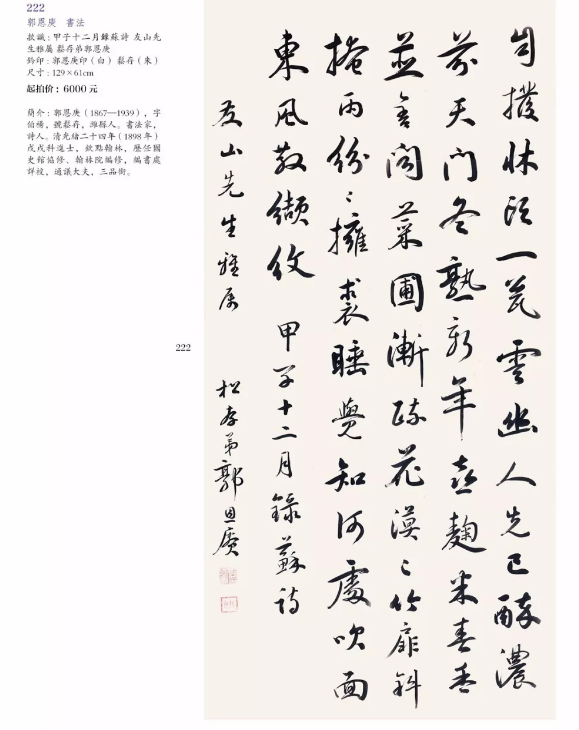 222
郭恩庚　書法
款識：甲子十二月錄蘇詩 友山先
生雅屬 鬆存弟郭恩庚
鈐印：郭恩庚印（白） 鬆存（朱）
尺寸：129×61cm
起拍價：6000 元
簡介：郭恩庚（1867—1939），字
伯楊，號鬆存，濰縣人。書法家，
詩人。清光緒二十四年（1898 年）
戊戌科進士，欽點翰林，歷任國
史館協修、翰林院編修，編書處
詳校，通議大夫，三品銜。
222
自撥牀頭一瓮雲幽人先已醉濃
芬天門冬熟新年喜麴米春香
並舍聞菜圃漸疏花漠〻竹扉斜
掩雨紛〻擁裘睡覺知何處吹面
東風散纈紋 甲子十二月錄蘇詩
友山先生雅属 松存弟郭恩賡